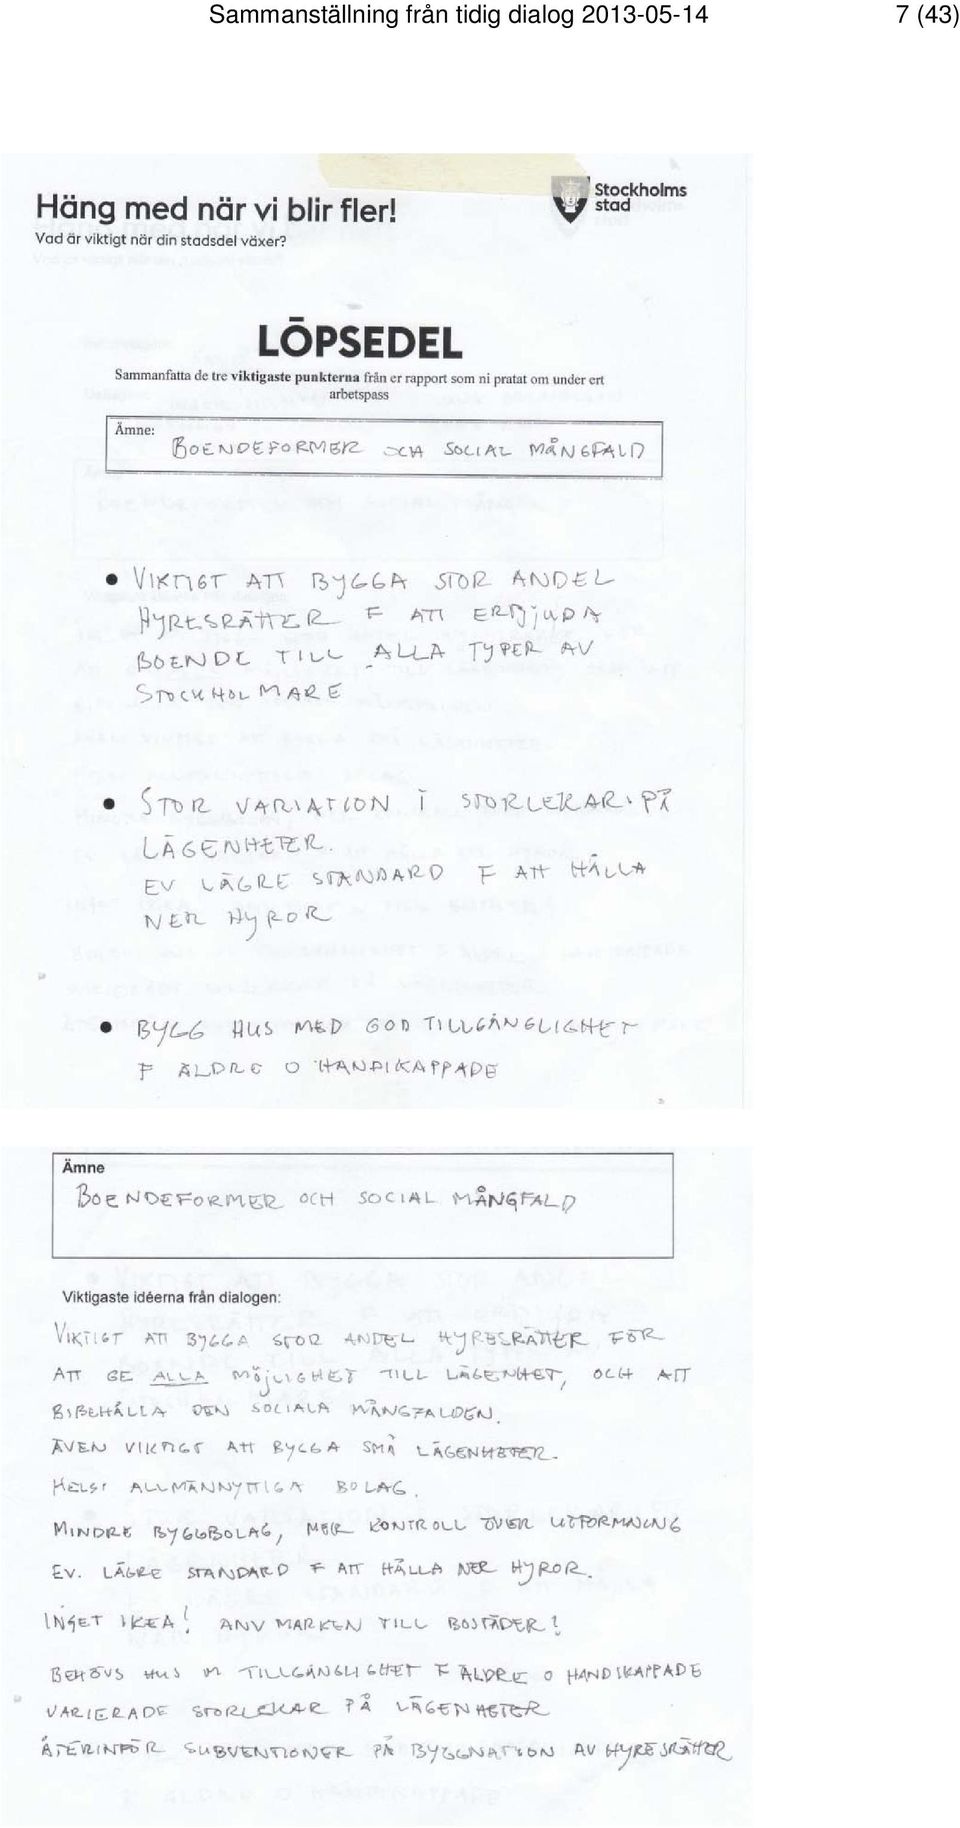 Sammanställning från tidig dialog 2013-05-14 7 (43)
Häng med när vi blir fler!
Vad är viktigt när din stadsdel växer?
Stockholms
stad
LÖPSEDEL
Sammanfatta de tre viktigaste punkterna från er rapport som ni pratat om under ert
arbetspass
Ämne:
BOENDEFORMER OCH SOCIAL MÅNGFALD
• VIKTIGT ATT BYGGA STOR ANDEL
HYRESRÄTTER F ATT ERBJUDA
BOENDE TILL ALLA TYPER AV
STOCKHOLMARE
• STOR VARIATION I STORLEKAR PÅ
LÄGENHETER.
EV LÄGRE STANDARD F ATT HÅLLA
NER HYROR
• BYGG HUS MED GOD TILLGÄNGLIGHET
F ÄLDRE O HANDIKAPPADE
Ämne
BOENDEFORMER OCH SOCIAL MÅNGFALD
Viktigaste idéerna från dialogen:
VIKTIGT ATT BYGGA STOR ANDEL HYRESRÄTTER FÖR
ATT GE ALLA MÖJLIGHET TILL LÄGENHET, OCH ATT
BIBEHÅLLA DEN SOCIALA MÅNGFALDEN.
ÄVEN VIKTIGT ATT BYGGA SMÅ LÄGENHETER.
HELST ALLMÄNNYTTIGA BOLAG.
MINDRE BYGGBOLAG, MER KONTROLL ÖVER UTFORMNING
EV. LÄGRE STANDARD F ATT HÅLLA NER HYROR.
INGET IKEA! ANV MARKEN TILL BOSTÄDER!
BEHÖVS HUS M TILLGÄNGLIGHET F ÄLDRE O HANDIKAPPADE
VARIERADE STORLEKAR PÅ LÄGENHETER
ÅTERINFÖR SUBVENTIONER PÅ BYGGNATION AV HYRESRÄTTER